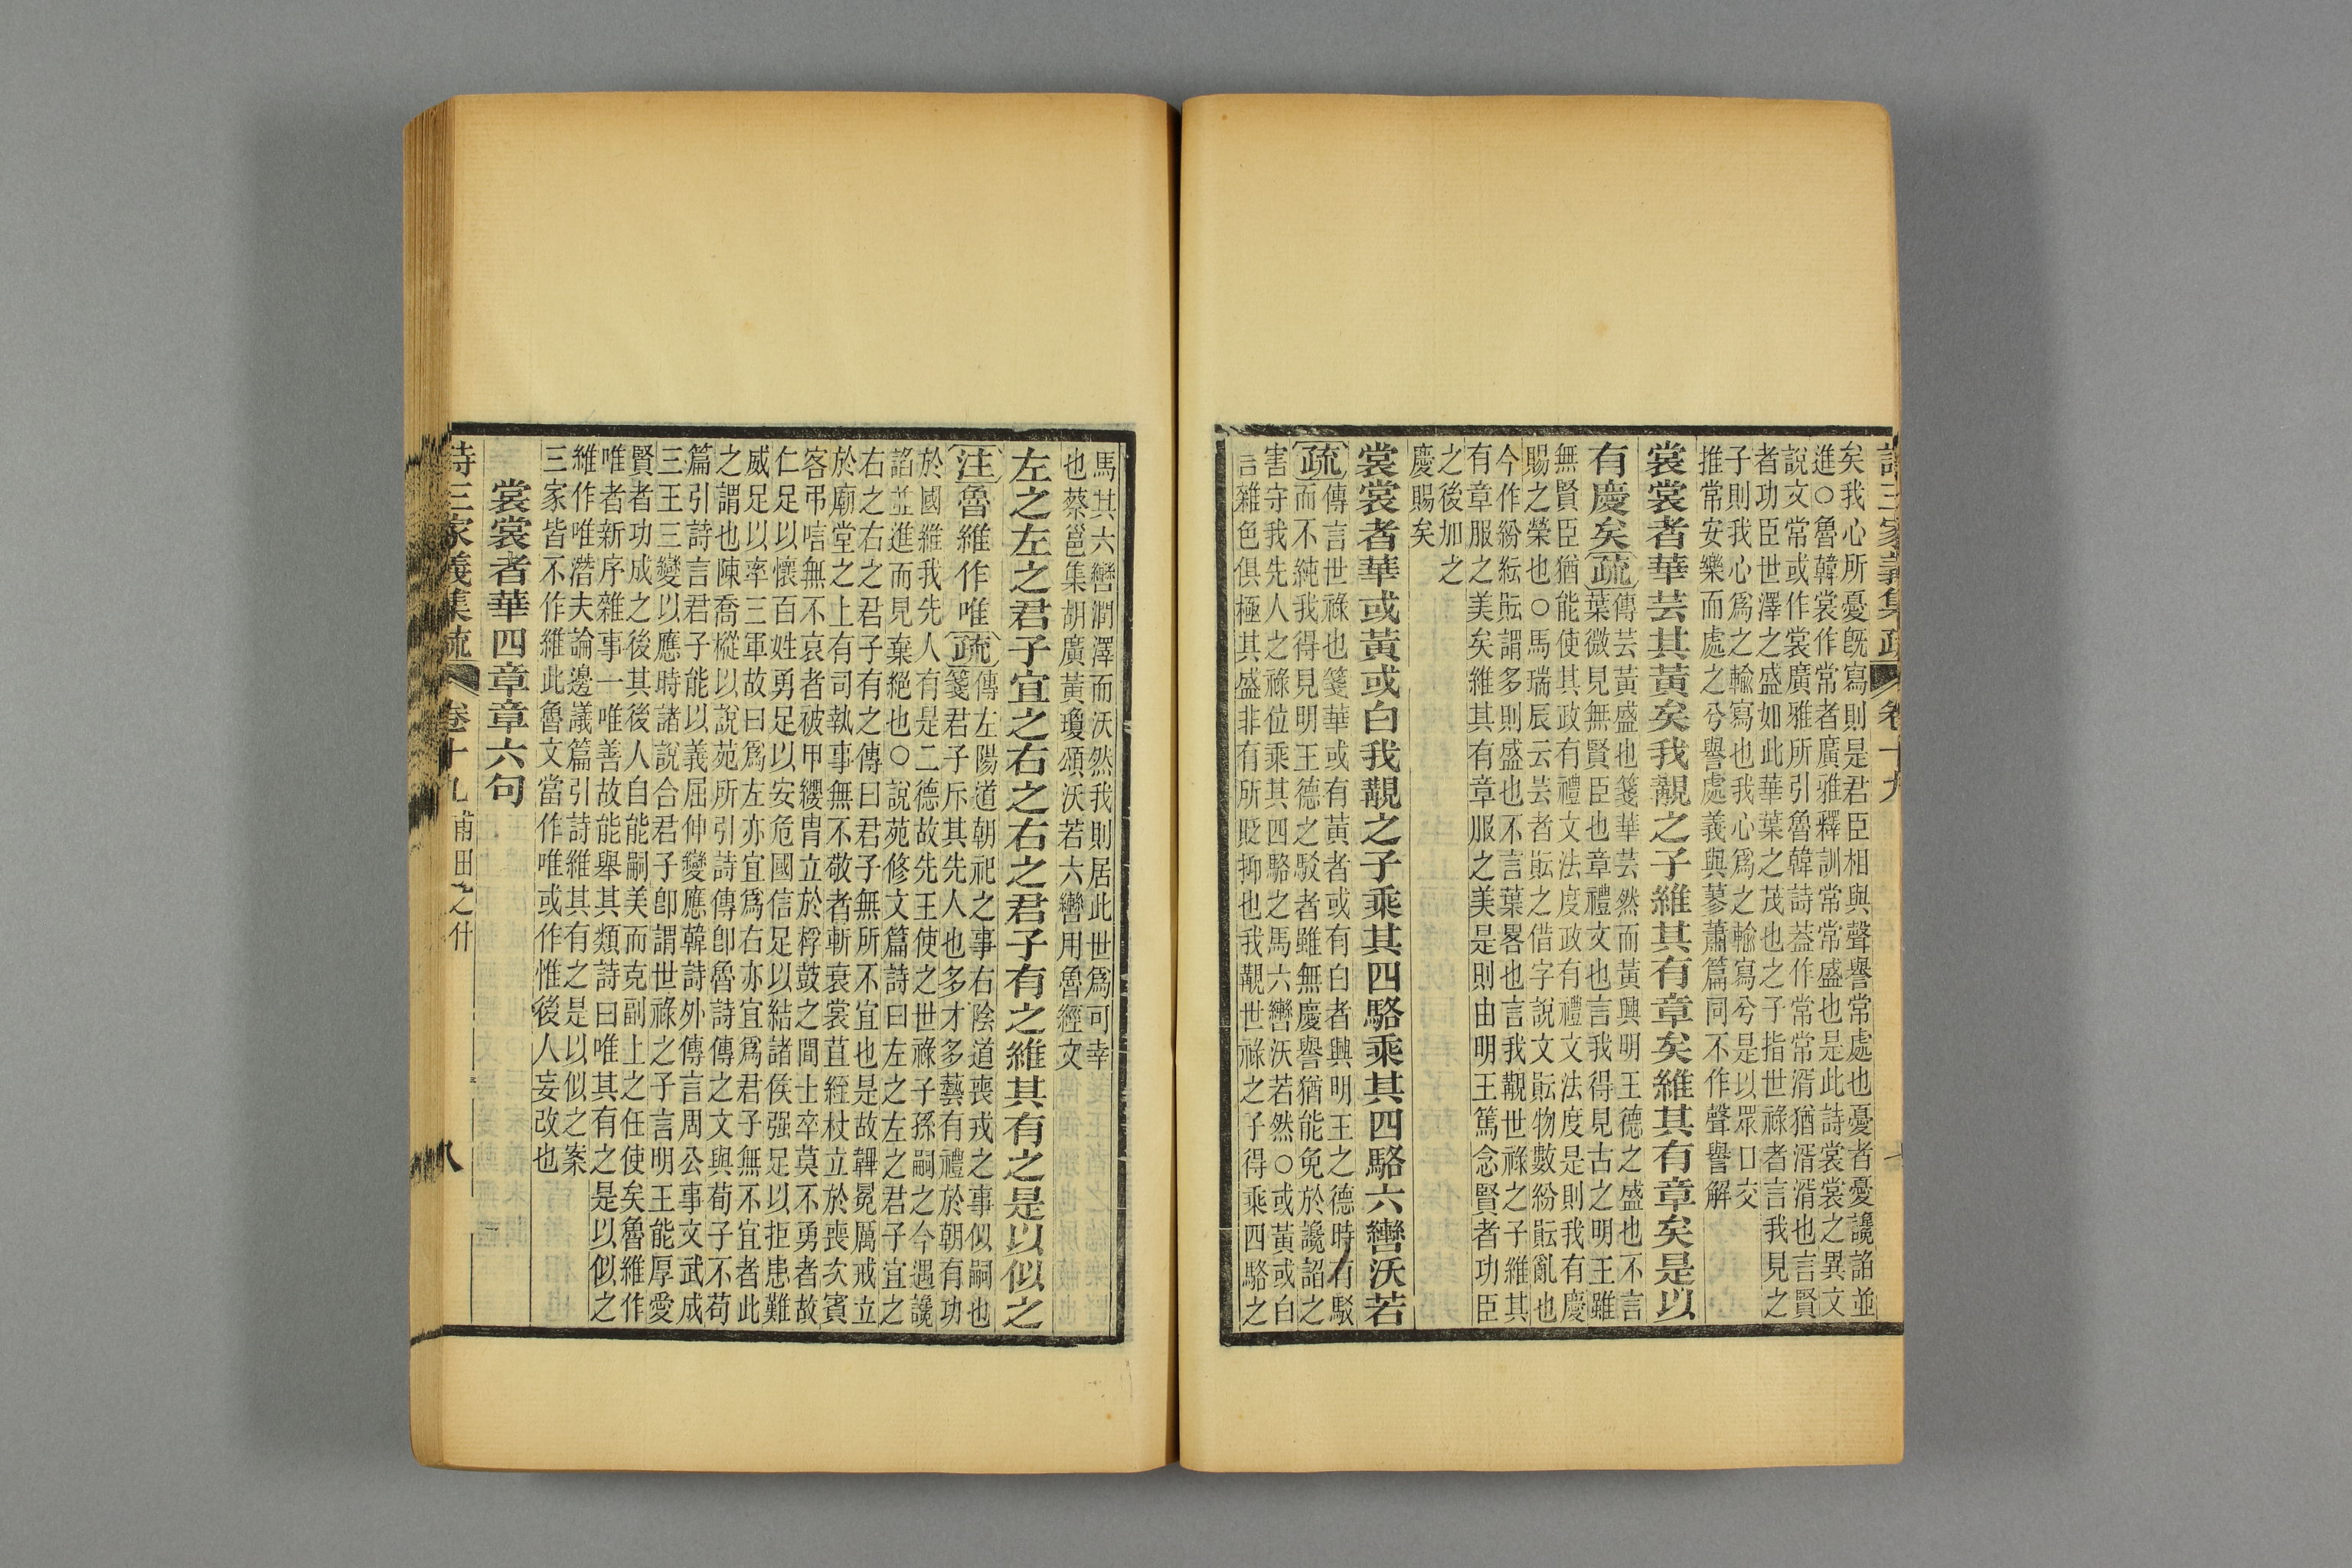 詩三家義集疏 卷十九
矣我心所憂既寫則是君臣相與聲譽常處也憂者憂讒諂並
進○魯韓裳作常者廣雅釋訓常常盛也是此詩裳裳之異文
說文常或作裳廣雅所引魯韓詩葢作常常湑猶湑湑也言賢
者功臣世澤之盛如此華葉之茂也之子指世祿者言我見之
子則我心爲之輸寫也我心爲之輸寫兮是以眾口交
推常安樂而處之兮譽處義與蓼蕭篇同不作聲譽解
裳裳者華芸其黃矣我覯之子維其有章矣維其有章矣是以
有慶矣疏
傳芸黃盛也箋華芸然而黃興明王德之盛也不言
葉微見無賢臣也章禮文也言我得見古之明王雖
無賢臣猶能使其政有禮文法度政有禮文法度是則我有慶
賜之榮也○馬瑞辰云芸者䢵之借字說文䢵物數紛䢵亂也
今作紛紜䢵謂多則盛也不言葉畧也言我覯世祿之子維其
有章服之美矣維其有章服之美是則由明王篤念賢者功臣
之後加之
慶賜矣
裳裳者華或黃或白我覯之子乘其四駱乘其四駱六轡沃若
疏
傳言世祿也箋華或有黃者或有白者興明王之德時有駁
而不純我得見明王德之駁者雖無慶譽猶能免於讒諂之
害守我先人之祿位乘其四駱之馬六轡沃若然○或黃或白
言雜色俱極其盛非有所貶抑也我覯世祿之子得乘四駱之
馬其六轡潤澤而沃然我則居此世爲可幸
也蔡邕集胡廣黃瓊頌沃若六轡用魯經文
左之左之君子宜之右之右之君子有之維其有之是以似之
注魯維作唯疏
傳左陽道朝祀之事右陰道喪戎之事似嗣也
箋君子斥其先人也多才多藝有禮於朝有功
於國維我先人有是二德故先王使之世祿子孫嗣之今遇讒
諂並進而見棄絕也○說苑修文篇詩曰左之左之君子宜之
右之右之君子有之傳曰君子無所不宜也是故韠冕厲戒立
於廟堂之上有司執事無不敬者斬衰裳苴絰杖立於喪次賓
客弔唁無不哀者被甲纓冑立於桴鼓之間士卒莫不勇者故
仁足以懷百姓勇足以安危國信足以結諸侯强足以拒患難
威足以率三軍故曰爲左亦宜爲右亦宜爲君子無不宜者此
之謂也陳喬樅以說苑所引詩傳卽魯詩傳之文與荀子不苟
篇引詩言君子能以義屈伸變應韓詩外傳言周公事文武成
三王三變以應時諸說合君子卽謂世祿之子言明王能厚愛
賢者功成之後其後人自能嗣美而克副上之任使矣魯維作
唯者新序雜事一唯善故能舉其類詩曰唯其有之是以似之
維作唯潛夫論邊議篇引詩維其有之是以似之案
三家皆不作維此魯文當作唯或作惟後人妄改也
裳裳者華四章章六句
詩三家義集疏 卷十九 甫田之什 八